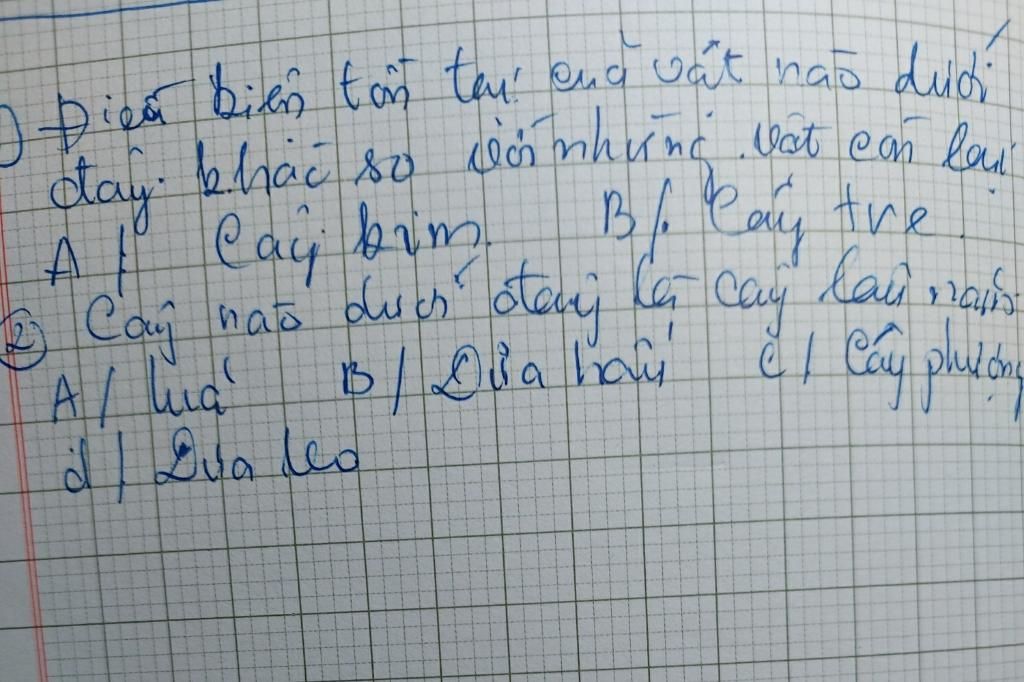 1) Điều kiện tồn tại của vật nào dưới
đây khác so với những vật còn lại
A / Cây kim. B /. Cây tre.
② Cây nào dưới đây là cây lâu năm
A / lúa B / Dưa hấu C / Cây phượng
d / Dưa leo